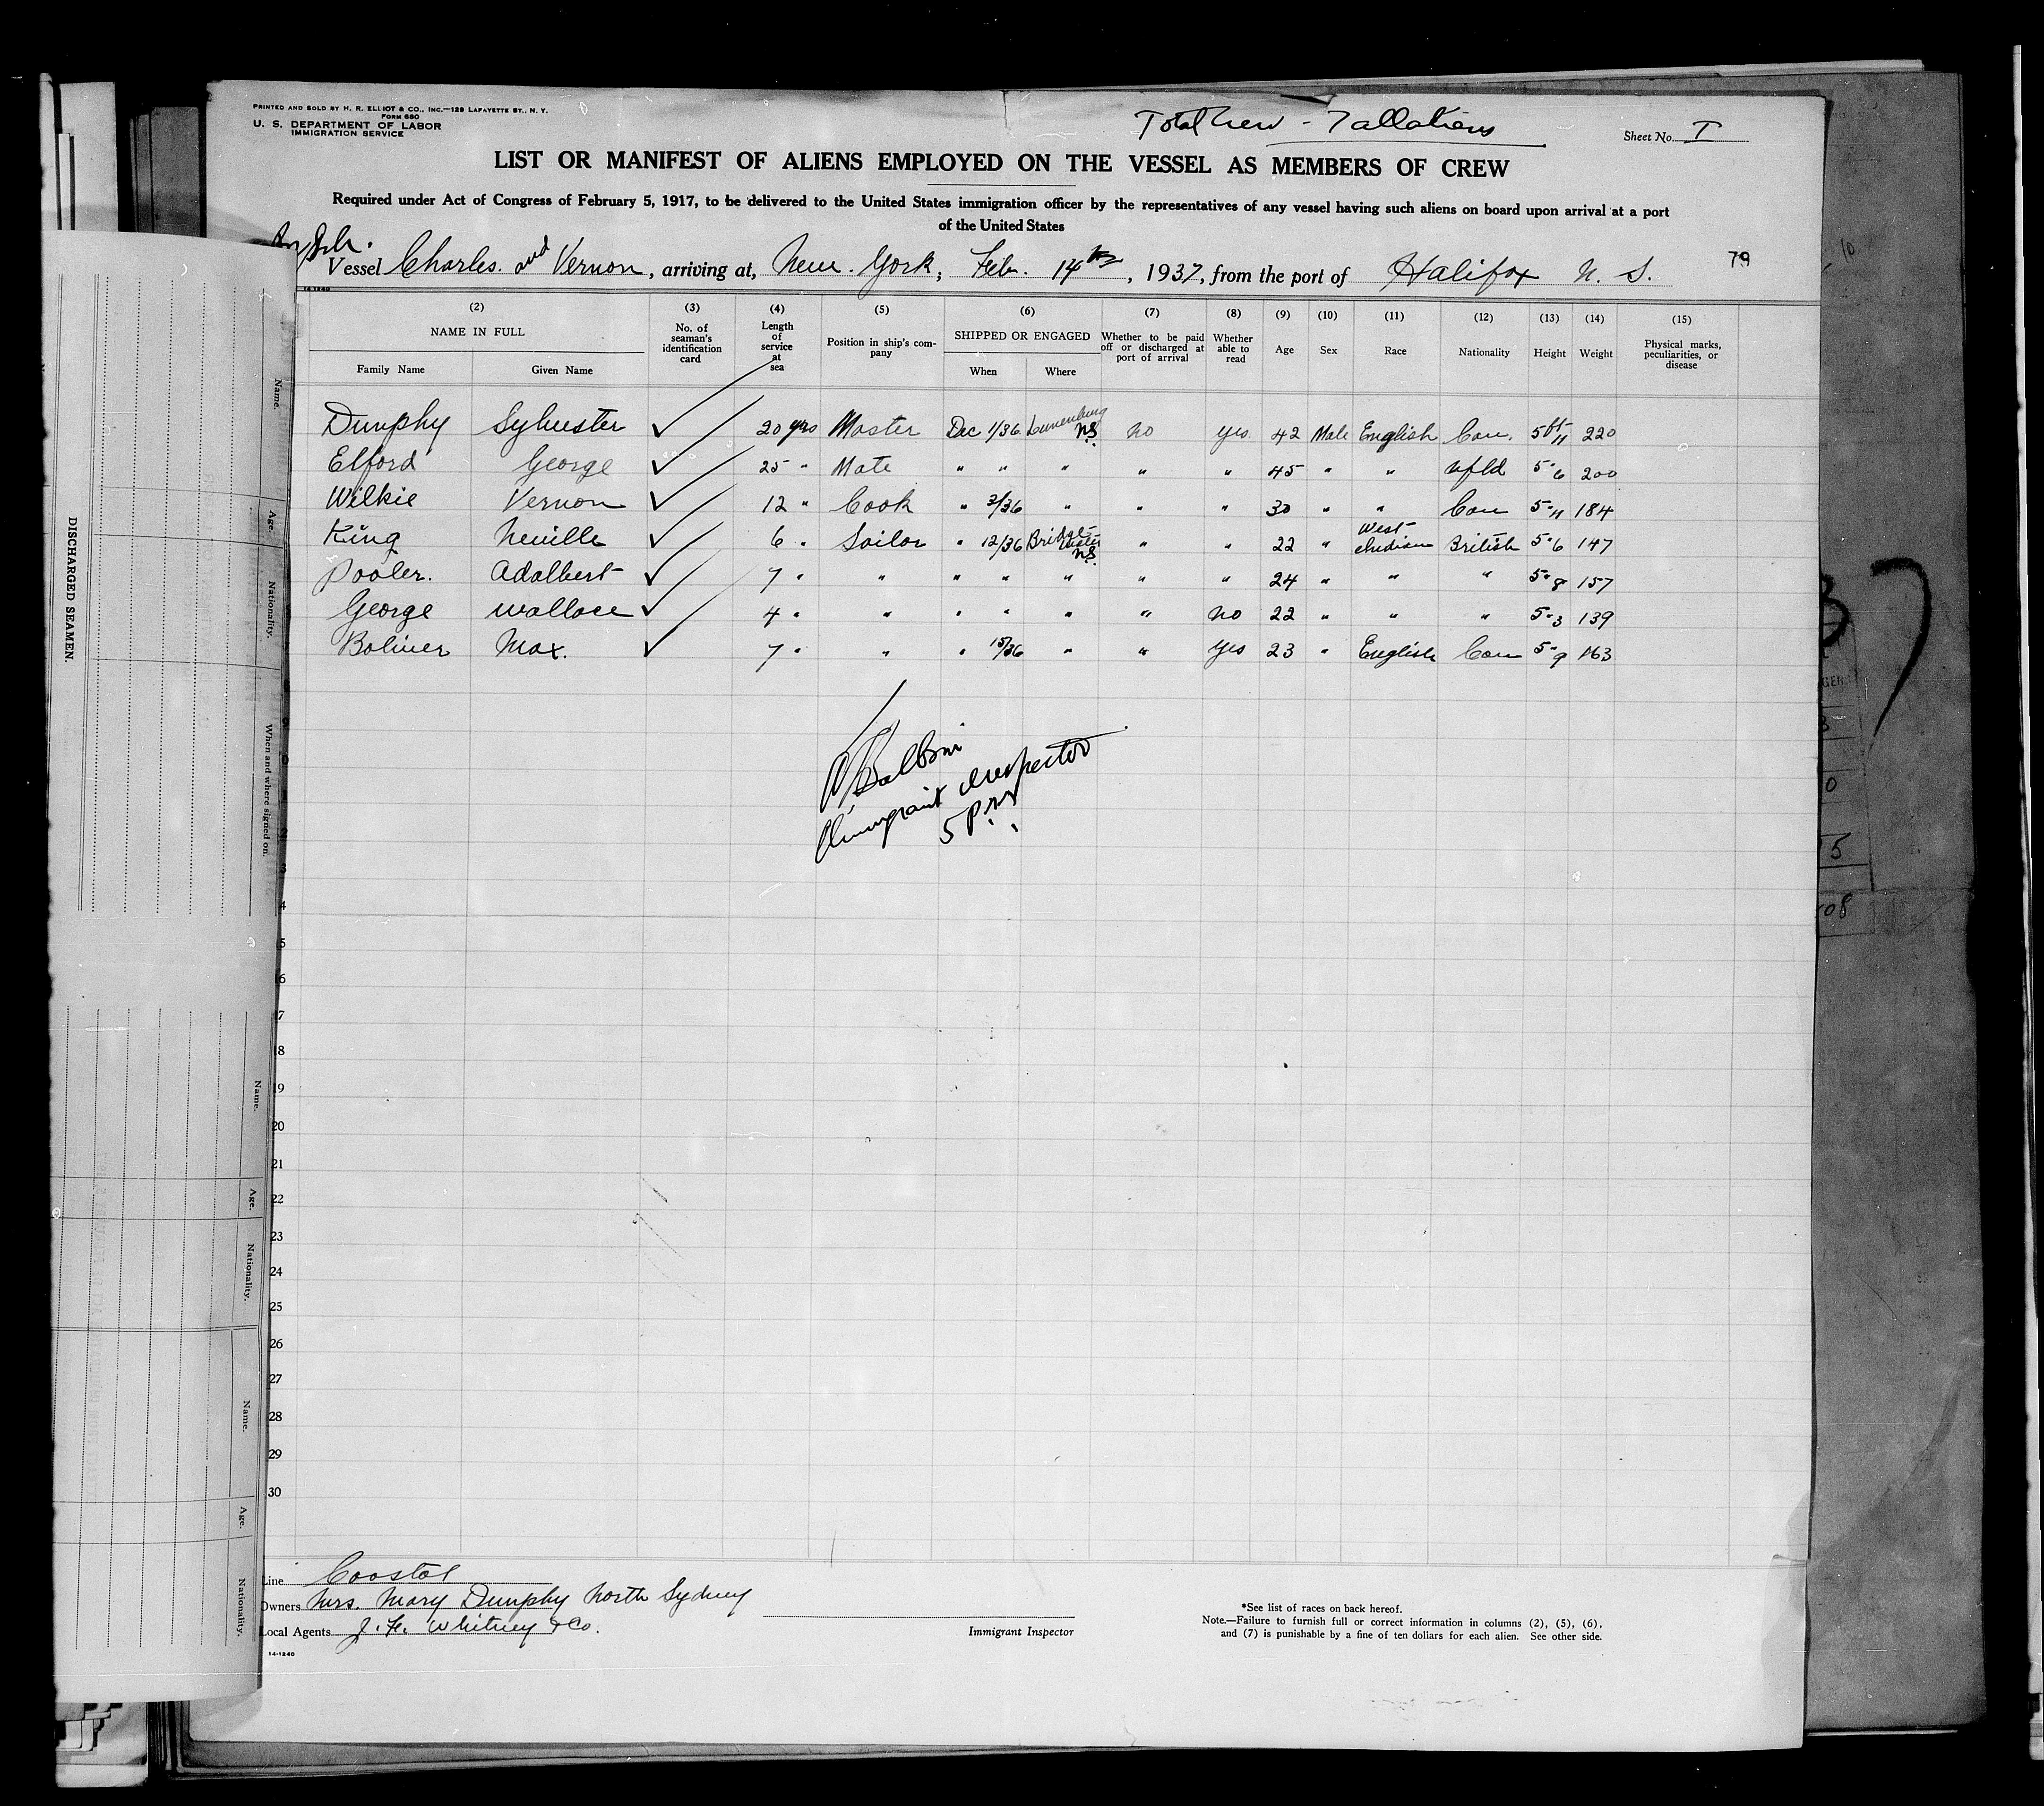 PRINTED AND SOLD BY H. R. ELLIOT & CO., INC.—129 LAFAYETTE ST., N. Y.
FORM 680
U. S. DEPARTMENT OF LABOR
IMMIGRATION SERVICE
Total Crew - 7 all aliens
Sheet No. I
LIST OR MANIFEST OF ALIENS EMPLOYED ON THE VESSEL AS MEMBERS OF CREW
Required under Act of Congress of February 5, 1917, to be delivered to the United States immigration officer by the representatives of any vessel having such aliens on board upon arrival at a port
of the United States
Vessel Charles and Vernon, arriving at, New York, Feb. 14th, 1937, from the port of Halifax N. S.
79
(2) (3) (4) (5) (6) (7) (8) (9) (10) (11) (12) (13) (14) (15)
NAME IN FULL No. of seaman's identification card Length of service at sea Position in ship's company SHIPPED OR ENGAGED Whether to be paid off or discharged at port of arrival Whether able to read Age Sex Race Nationality Height Weight Physical marks, peculiarities, or disease
Family Name Given Name When Where
Dunphy Sylvester ✓ 20 yrs Master Dec 1/36 Lunenburg N.S. no yes 42 Male English Can. 5 ft 11 220
Elford George ✓ 25 " Mate " " " " " 45 " " Nfld 5" 6 200
Wilkie Vernon ✓ 12 " Cook " 3/36 " " " 30 " " Can 5" 11 184
King Neville ✓ 6 " Sailor " 12/36 Bridgewater N.S. " " 22 " West Indian British 5" 6 147
Pooler. Adalbert ✓ 7 " " " " " " " 24 " " " 5" 8 157
George Wallace ✓ 4 " " " " " " no 22 " " " 5" 3 139
Boliver Max. ✓ 7 " " " 15/36 " " yes 23 " English Can 5" 9 163
Immigrant Inspector
5 PM
9
0
2
3
4
5
6
7
18
19
20
21
22
23
24
25
26
27
28
29
30
Line Coastal
Owners Mrs. Mary Dunphy North Sydney
Local Agents J. F. Whitney & Co.
Immigrant Inspector
*See list of races on back hereof.
Note.—Failure to furnish full or correct information in columns (2), (5), (6),
and (7) is punishable by a fine of ten dollars for each alien. See other side.
14-1240
DISCHARGED SEAMEN.
Name.
Age.
Nationality.
When and where signed on.
Name.
Age.
Nationality.
Name.
Age.
Nationality.